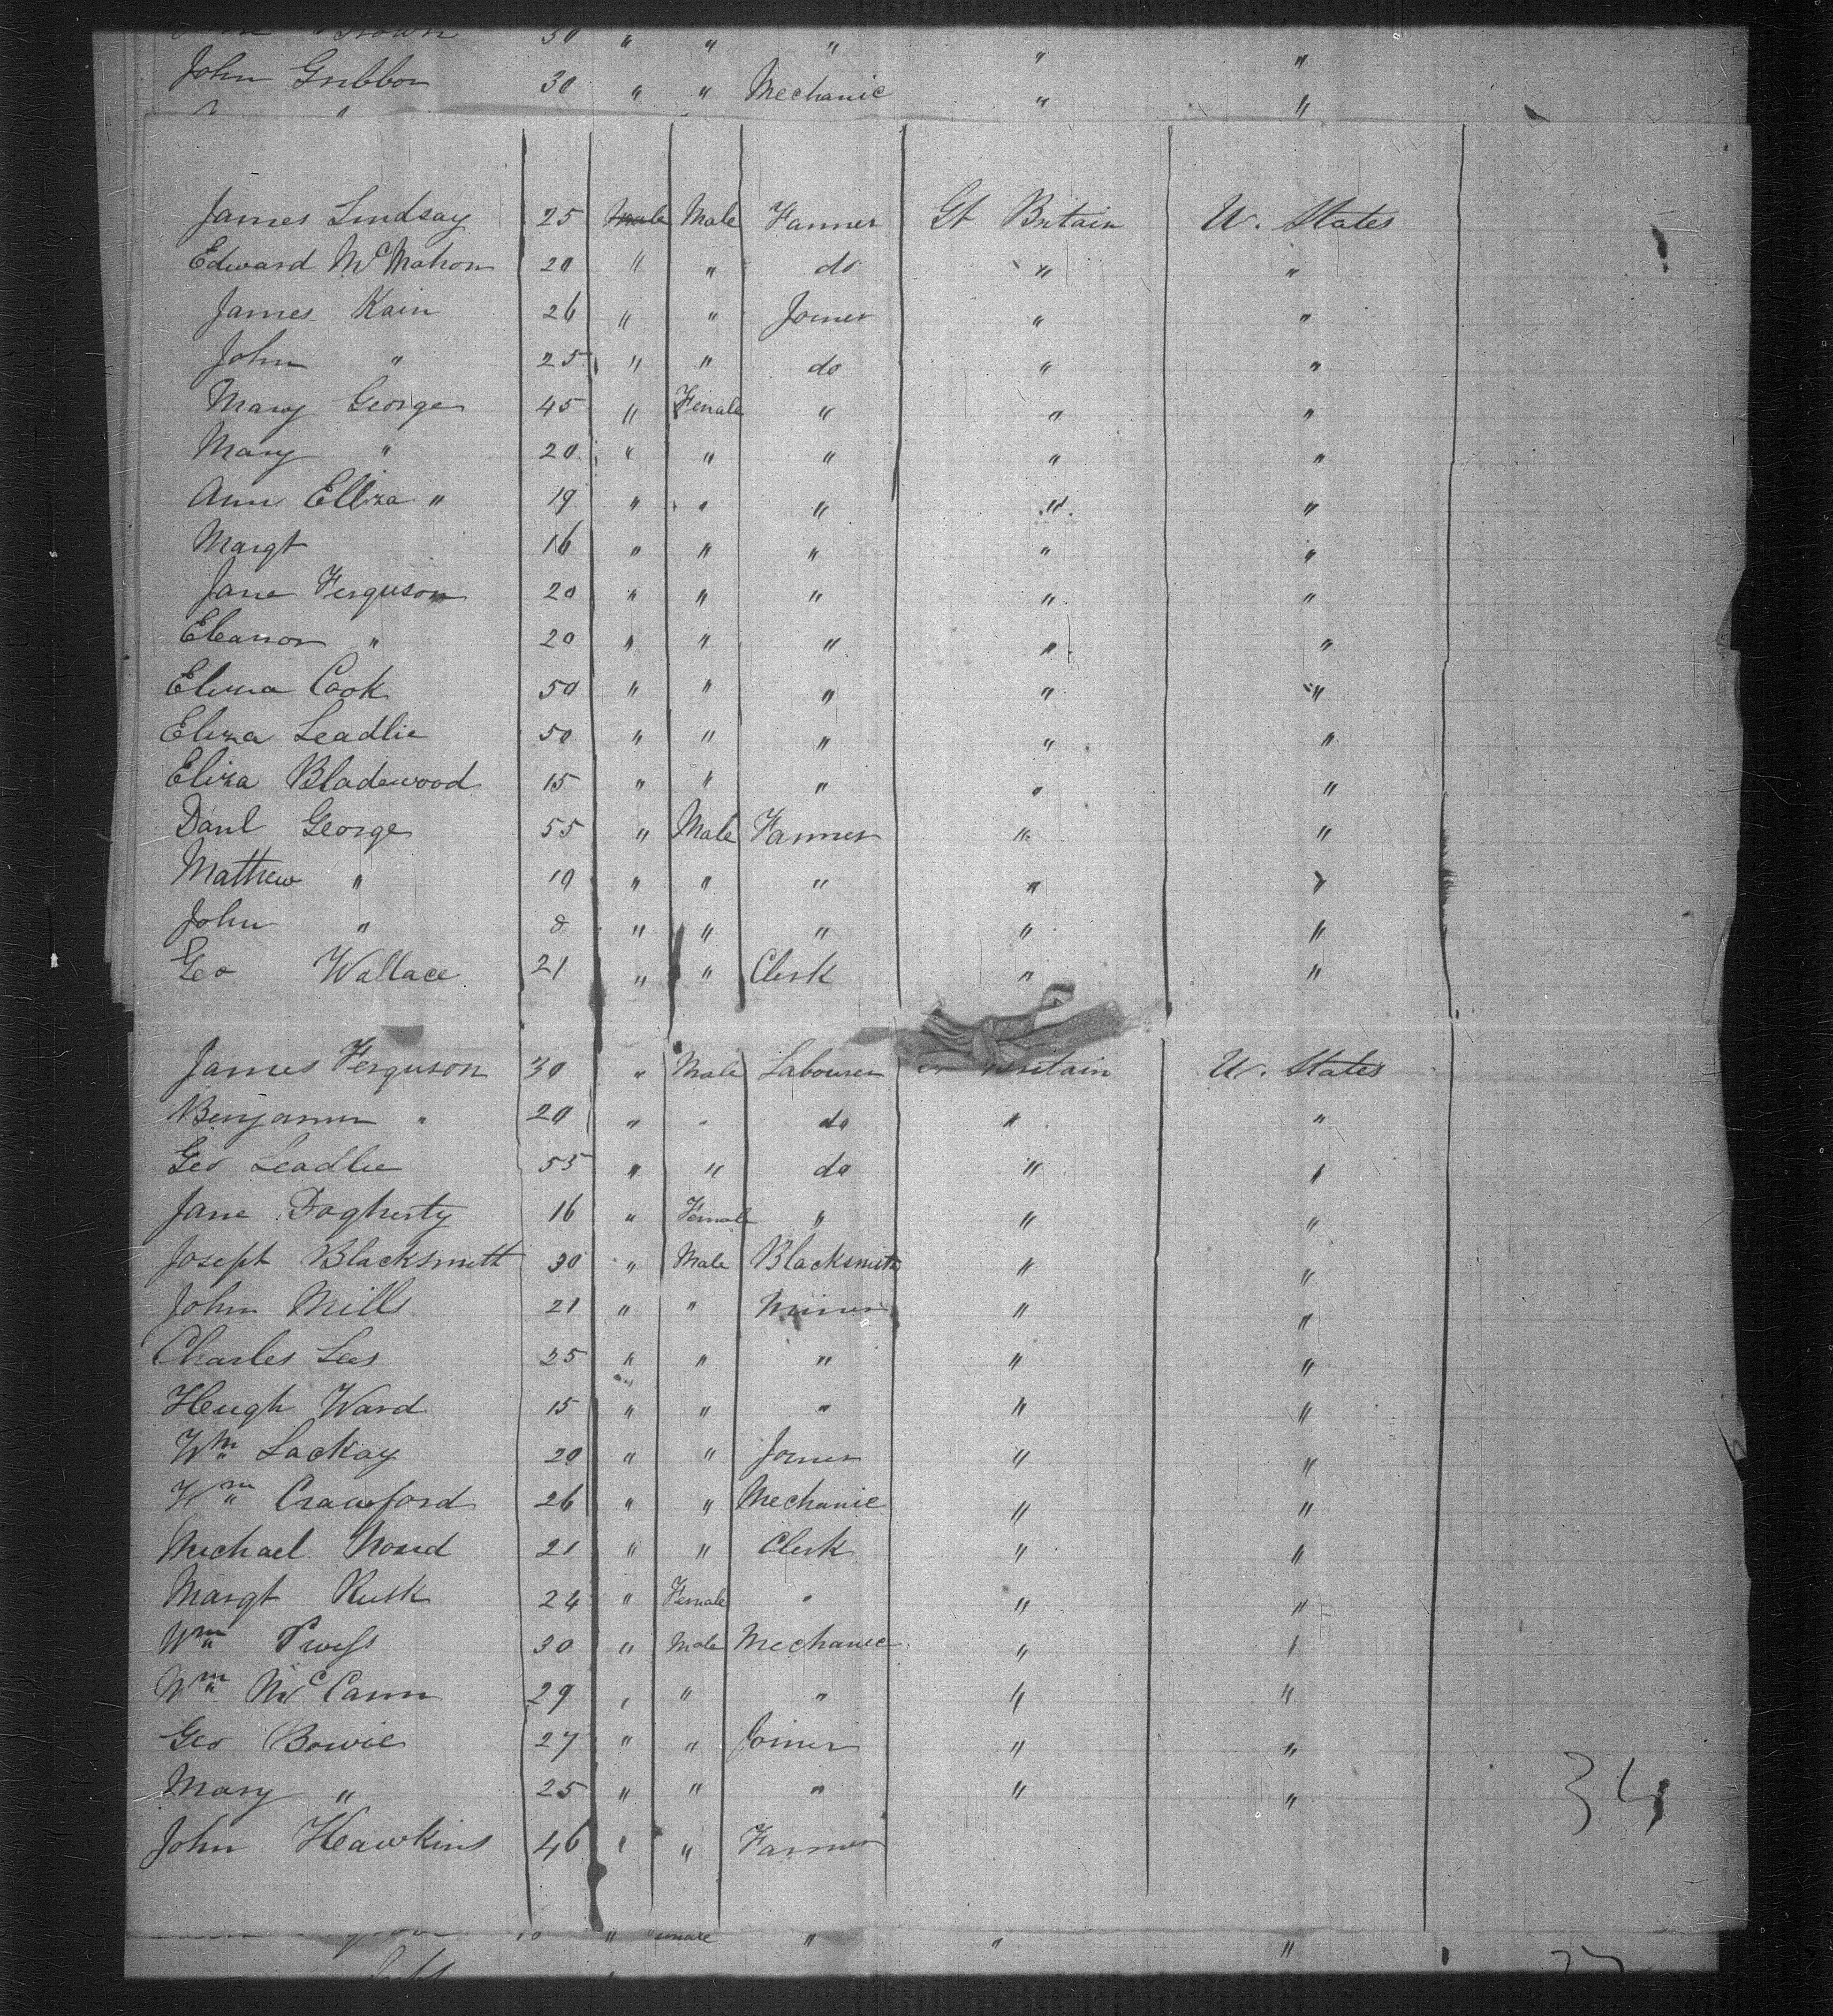 Brown 30 " " " " "
John Gribbon 30 " " Mechanic " "
James Lindsay 25 Male Male Farmer Gt Britain U. States
Edward McMahon 20 " " do " "
James Kain 26 " " Joiner " "
John " 25 " " do " "
Mary George 45 " Female " " "
Mary " 20 " " " " "
Ann Elliza " 19 " " " " "
Margt 16 " " " " "
Jane Ferguson 20 " " " " "
Eleanor " 20 " " " " "
Eliza Cook 50 " " " " "
Eliza Leadlie 50 " " " " "
Eliza Bladewood 15 " " " " "
Danl George 55 " Male Farmer " "
Mathew " 19 " " " " "
John " 8 " " " " "
Geo Wallace 21 " " Clerk " "
James Ferguson 30 " Male Labourer Gt Britain U. States
Benjamin " 20 " " do " "
Geo Leadlie 55 " " do " "
Jane Dogherty 16 " Female " " "
Joseph Blacksmith 30 " Male Blacksmith " "
John Mills 21 " " Miner " "
Charles Lees 25 " " " " "
Heugh Ward 15 " " " " "
Wm Lackay 20 " " Joiner " "
Wm Crawford 26 " " Mechanic " "
Michael 21 " " Clerk " "
Margt Rusk 24 " Female " " "
Wm 30 " Male Mechanic " "
Wm McCann 29 " " " " "
Geo Bowie 27 " " Joiner " "
Mary " 25 " " " " "
34
John Heawkins 46 " " Farmer
" " " "